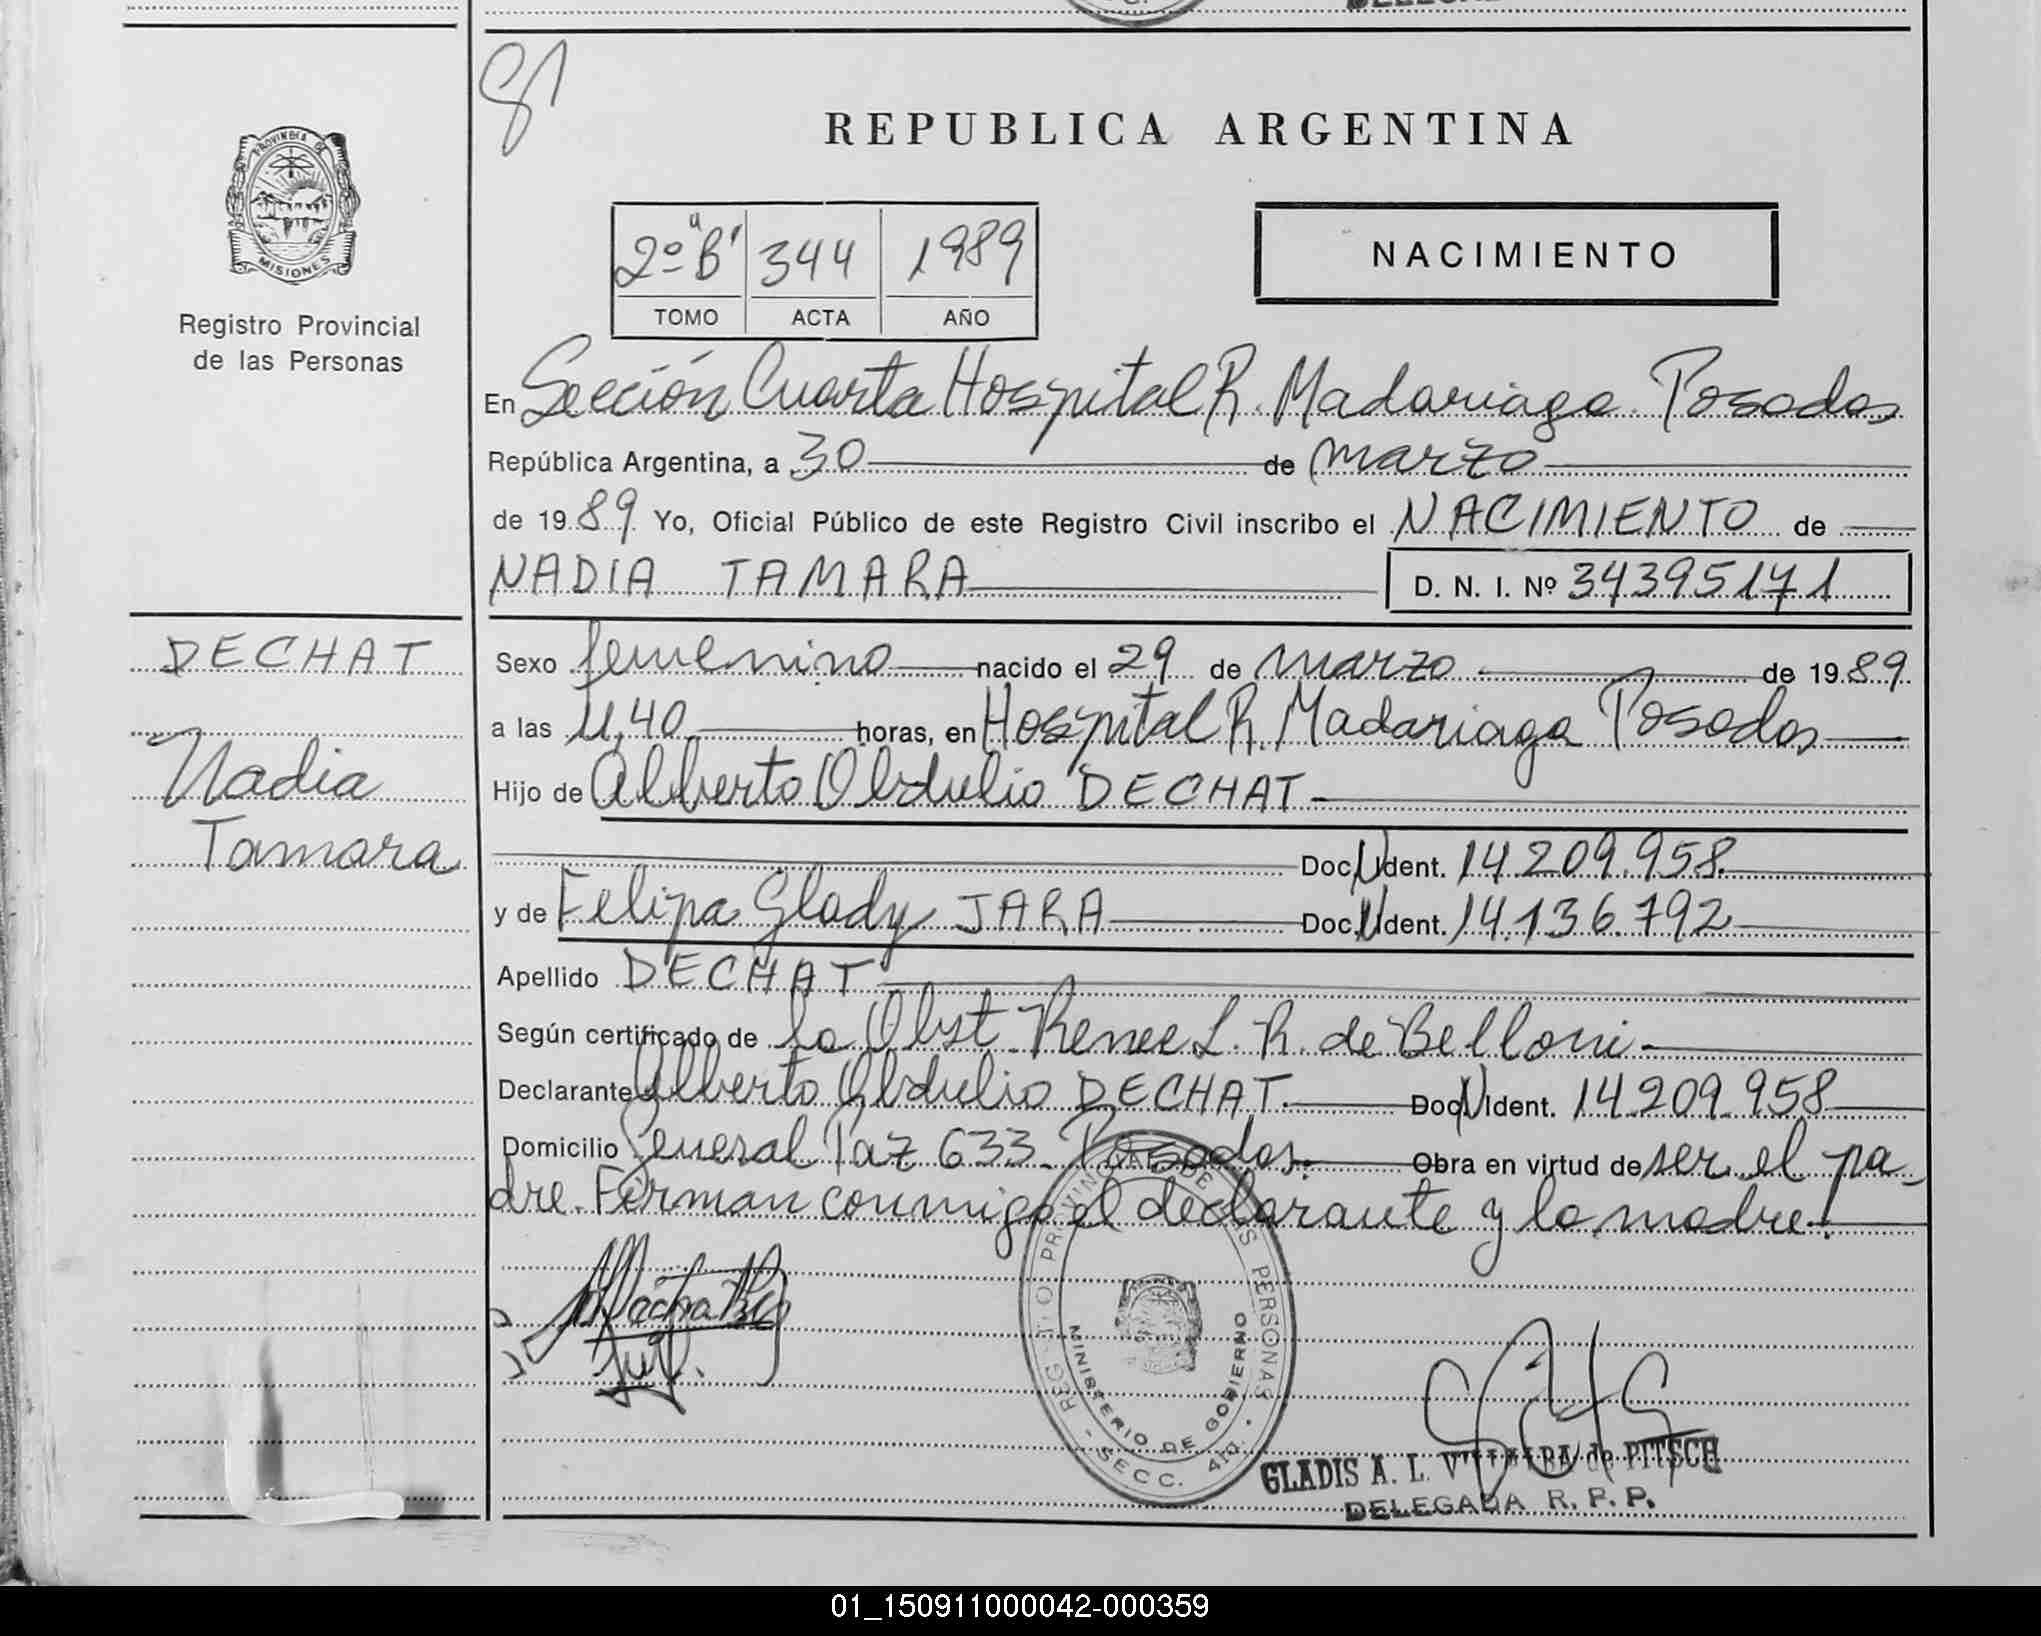 81
REPUBLICA ARGENTINA
PROVINCIA DE
MISIONES
Registro Provincial
de las Personas
2º "B" 344 1989
TOMO ACTA AÑO
NACIMIENTO
En Sección Cuarta Hospital R. Madariaga Posadas
República Argentina, a 30 de marzo
de 1989 Yo, Oficial Público de este Registro Civil inscribo el NACIMIENTO de
NADIA TAMARA D. N. I. Nº 34395171
DECHAT
Nadia
Tamara
Sexo femenino nacido el 29 de marzo de 1989
a las 11,40 horas, en Hospital R. Madariaga Posadas
Hijo de Alberto Obdulio DECHAT
Doc. Ident. 14.209.958
y de Felipa Glady JARA Doc. Ident. 14.136.792
Apellido DECHAT
Según certificado de la Obst. Renee L. R. de Belloni
Declarante Alberto Obdulio DECHAT Doc. Ident. 14.209.958
Domicilio General Paz 633 Posadas. Obra en virtud de ser el pa-
dre. Firman conmigo el declarante y la madre.
PERSONAS
MINISTERIO DE GOBIERNO
SECC. 4ta.
GLADIS A. L. de PITSCH
DELEGADA R. P. P.
01_150911000042-000359